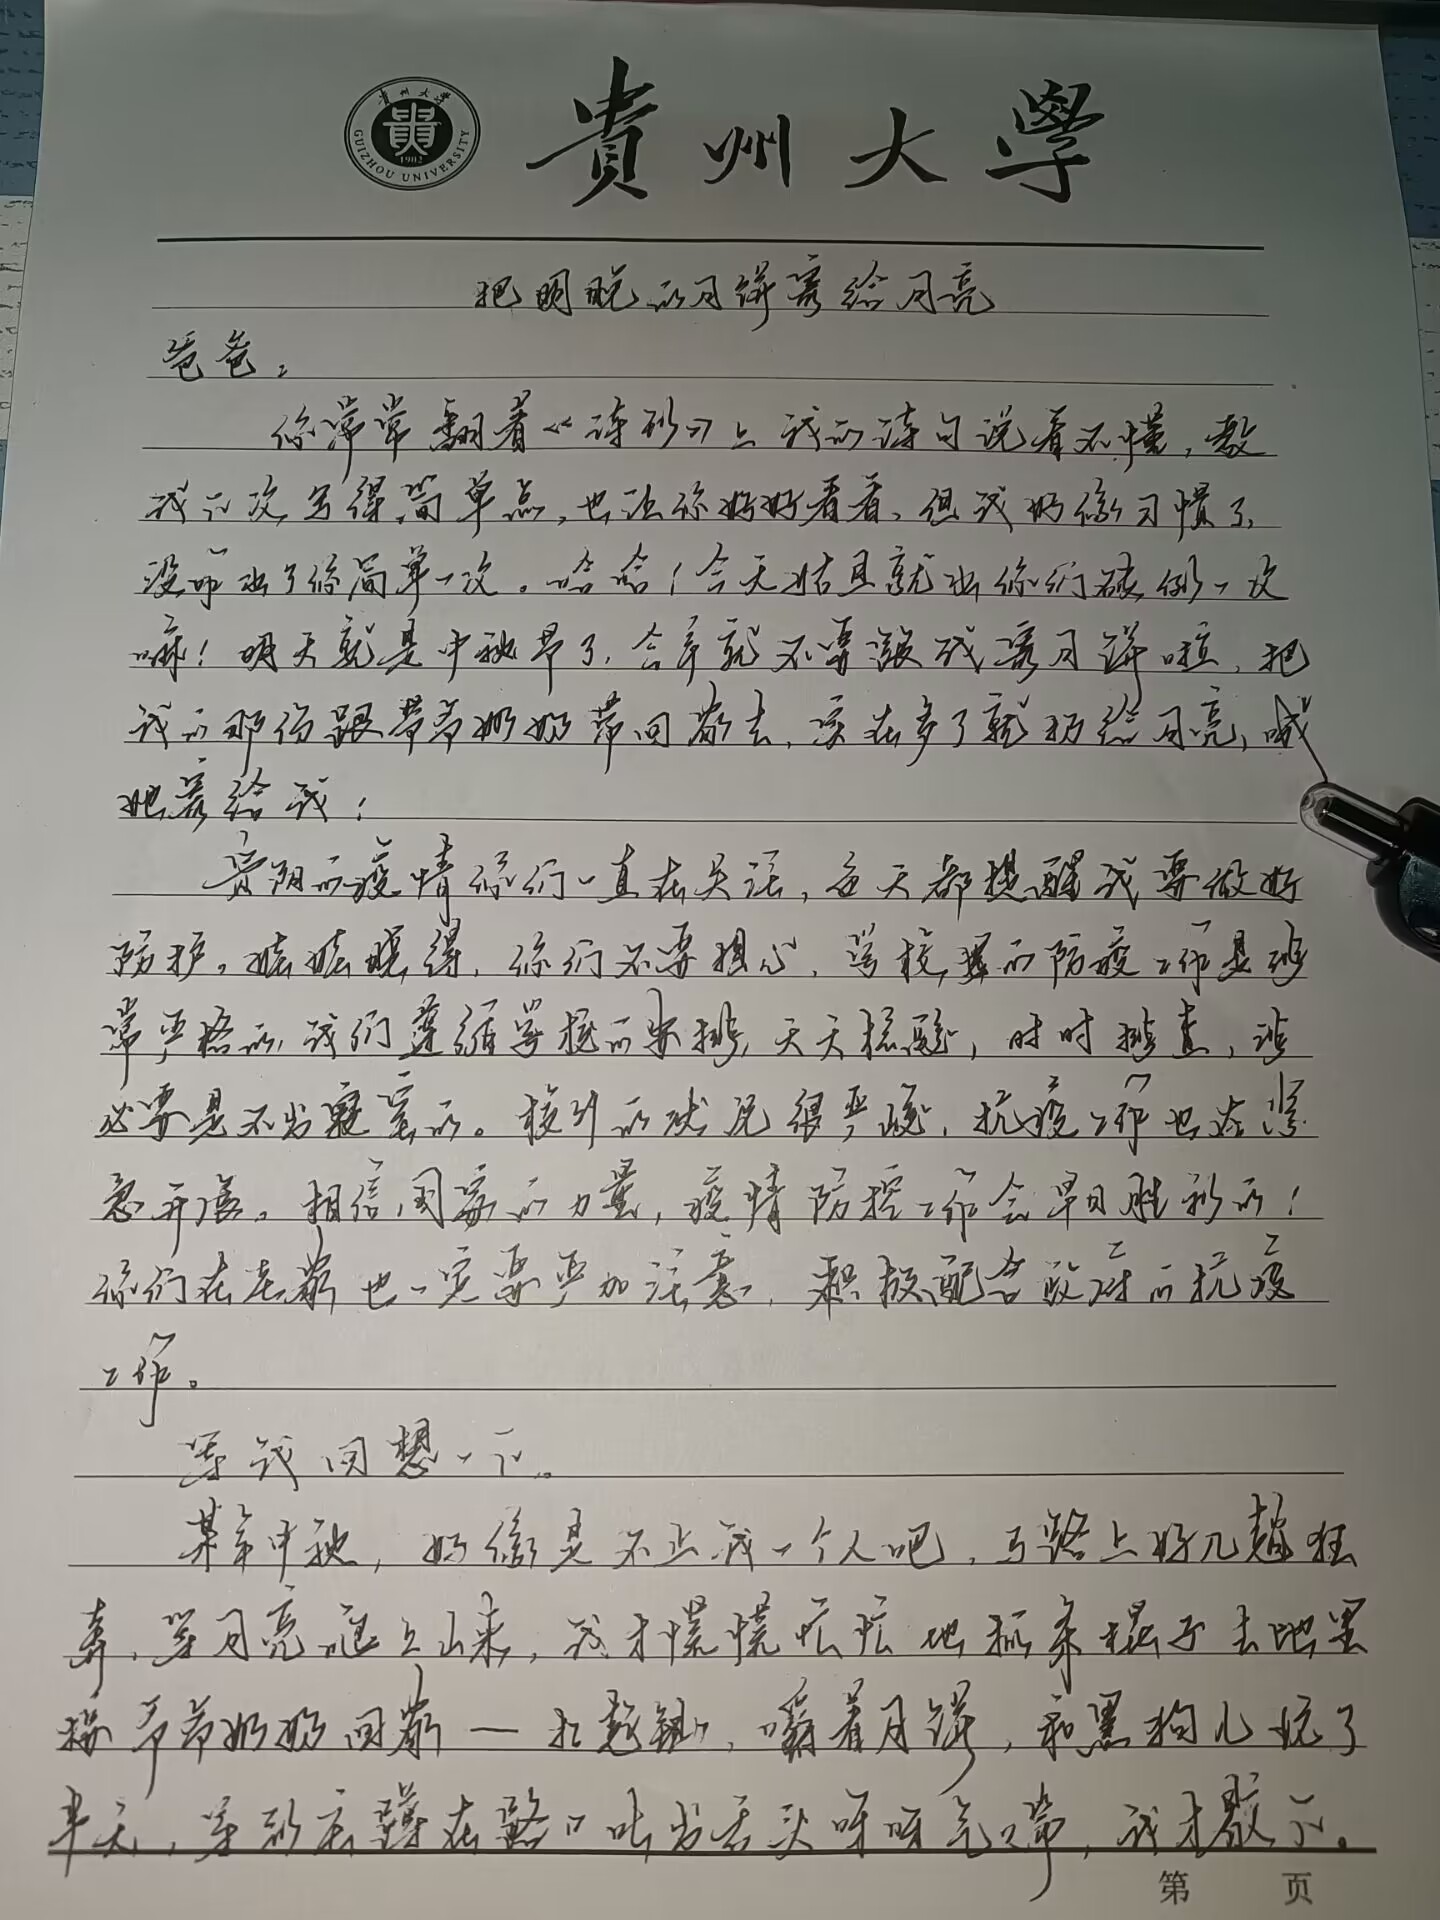 貴州大學
貴州大学
GUIZHOU UNIVERSITY
1902
把明晚的月饼寄给月亮
爸爸：
你常常翻着《诗刊》上我的诗句说看不懂，教
我下次写得简单点，也让你好好看看，但我好像习惯了，
没帮上你简单一次。哈哈！今天姑且就为你们破例一次
嘛！明天就是中秋节了，今年就不要跟我寄月饼啦，把
我的那份跟爷爷奶奶带回家去，实在多了就扔给月亮，喊
她寄给我！
贵阳的疫情你们一直在关注，每天都提醒我要做好
防护。娃娃晓得，你们不要担心，学校里的防疫工作是非
常严格的，我们遵循学校的安排，天天核酸，时时排查，非
必要是不出寝室的。校外的状况很严峻，抗疫工作也在紧
急开展。相信国家的力量，疫情防控工作会早日胜利的！
你们在老家也一定要严加注意，积极配合政府的抗疫
工作。
等我回想一下。
某年中秋，好像是不止我一个人吧，马路上好几趟狂
奔，等月亮爬上山来，我才慌慌忙忙地抓条棍子去地里
接爷爷奶奶回家——扛起锄，嚼着月饼，和黑狗儿玩了
半天，等到它蹲在路口吐出舌头呀呀气喘，我才歇下。
第 页